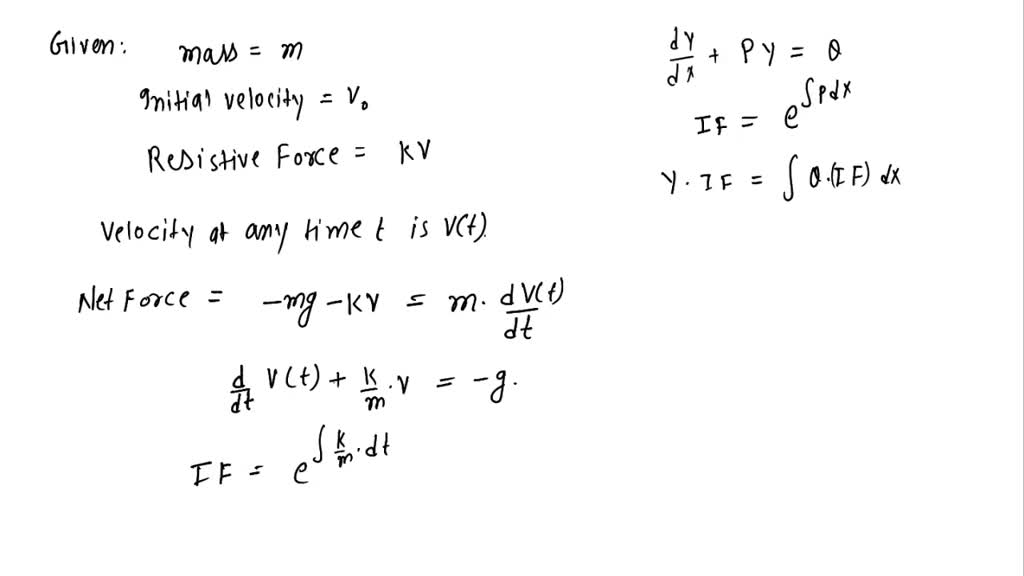 Given: mass = m
Initial velocity = V₀
Resistive Force = KV
Velocity at any time t is V(t).
Net Force = -mg - KV = m · dV(t)/dt
d/dt V(t) + K/m · V = -g.
IF = e^∫ K/m · dt
dY/dx + PY = Q
IF = e^∫Pdx
Y · IF = ∫ Q·(IF) dx